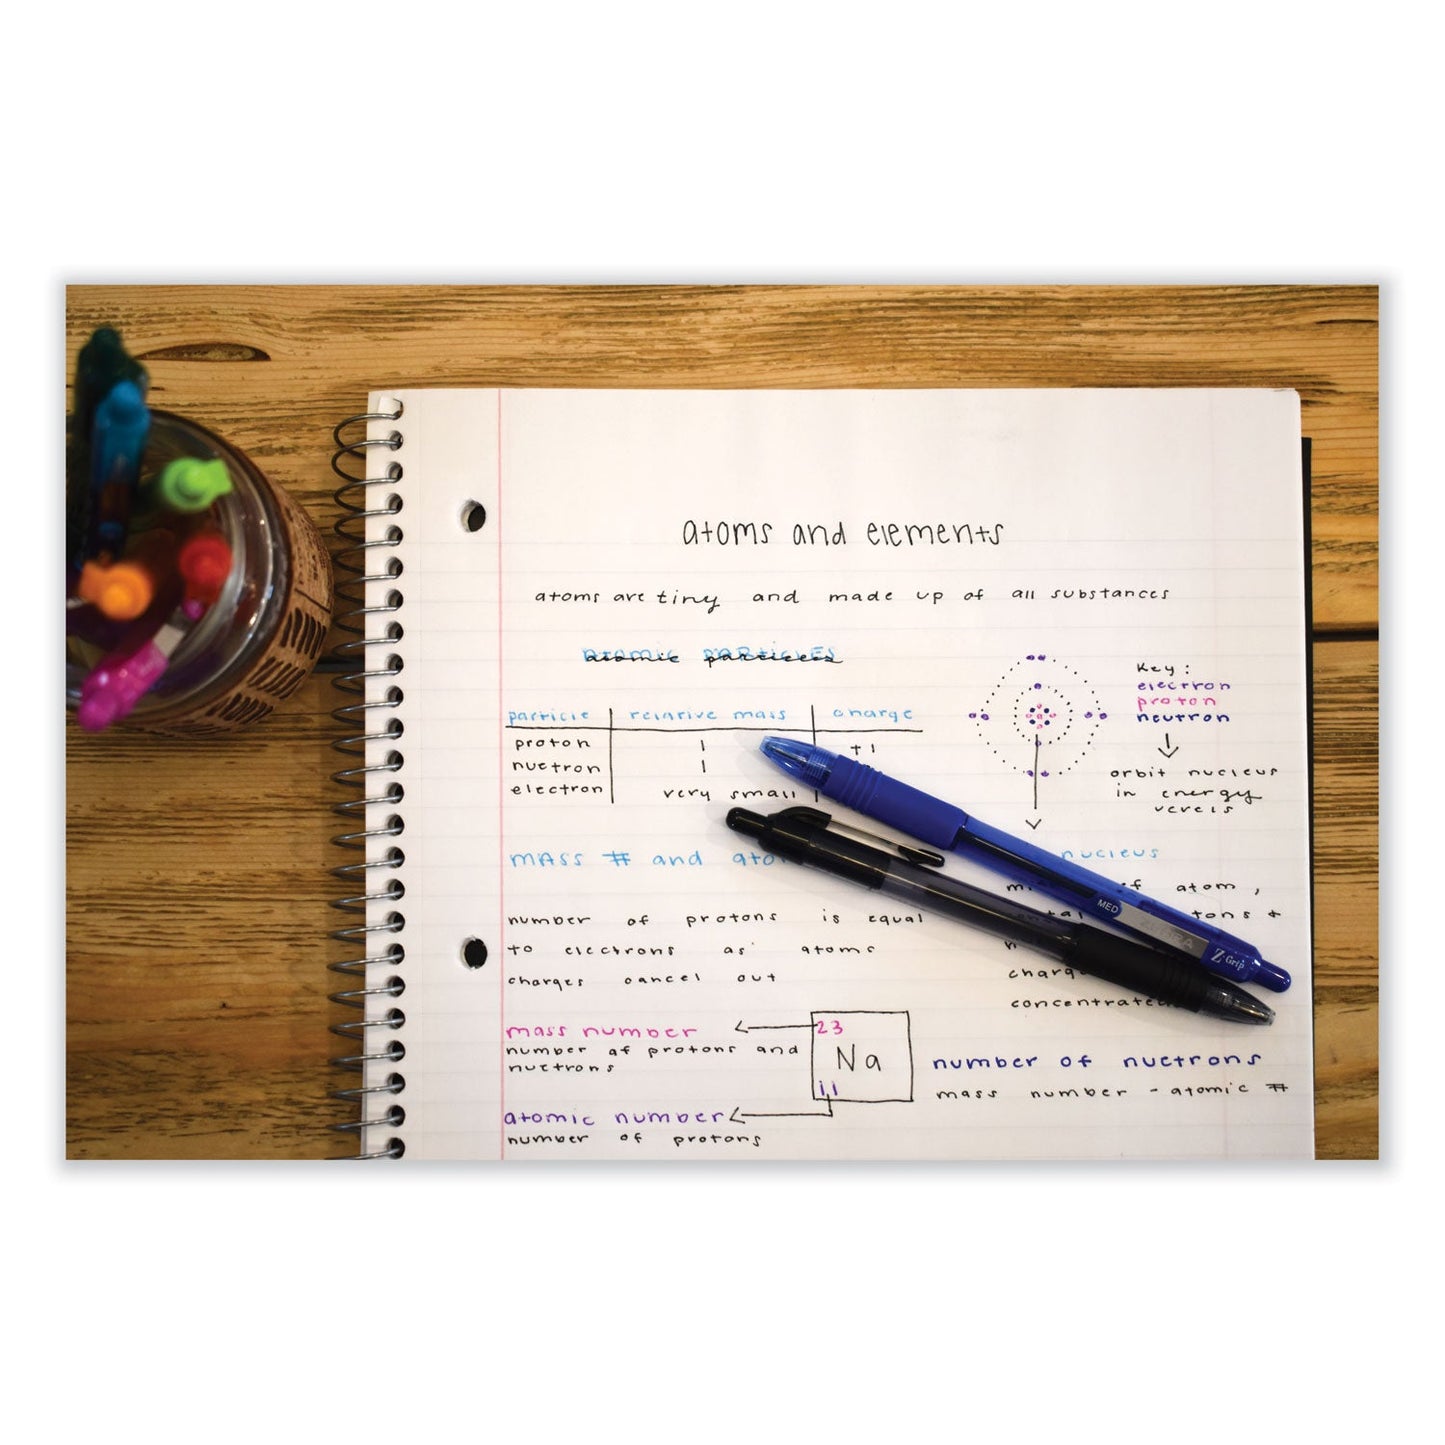 atoms and elements
atoms are tiny and made up of all substances
atomic particles
particle relative mass charge
proton 1 +1
nuetron 1
electron very small
Key:
electron
proton
neutron
orbit nucleus
in energy
mass # and
nucleus
of atom,
number of protons is equal
to electrons as atoms
charges cancel out
mass number
number of protons and
nuetrons
atomic number
number of protons
23
Na
11
number of nuetrons
mass number - atomic #
MED
ZEBRA
Z-Grip